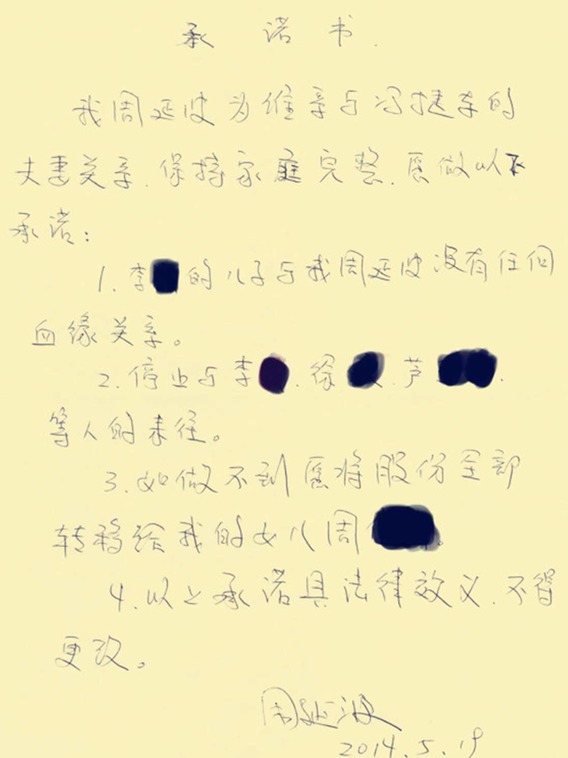 承诺书.
我周延波为维系与冯建东的
夫妻关系.保持家庭完整.愿做以下
承诺：
1.李 的儿子与我周延波没有任何
血缘关系。
2.停止与李 .徐 .芦 .
等人的来往。
3.如做不到愿将股份全部
转移给我的女儿周 。
4.以上承诺具法律效义.不得
更改。
周延波
2014.5.19